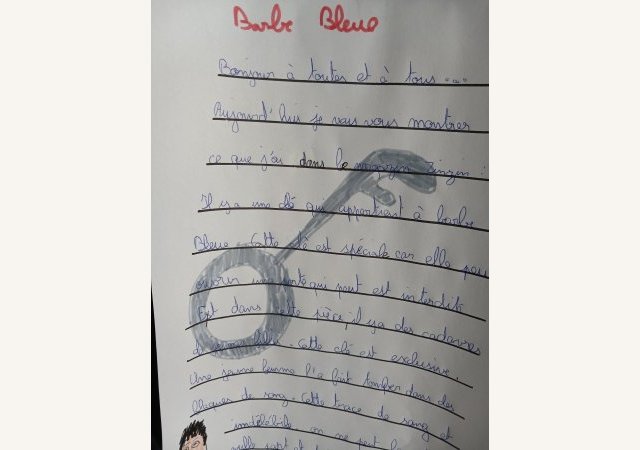 Barbe Bleue
Bonjour à toutes et à tous ...
Aujourd'hui je vais vous montrer
ce que j'ai dans le magazin zinzin :
Il y a une clé qui appartient à barbe
Bleue. Cette clé est spéciale car elle peu
ouvrir une porte qui peut est interdite
Est dans cette pièce, il y a des cadavres
de . Cette clé est exclusive.
Une jeune femme l'a fait tomber dans des
flaques de sang. Cette trace de sang est
indélébile. on ne peut